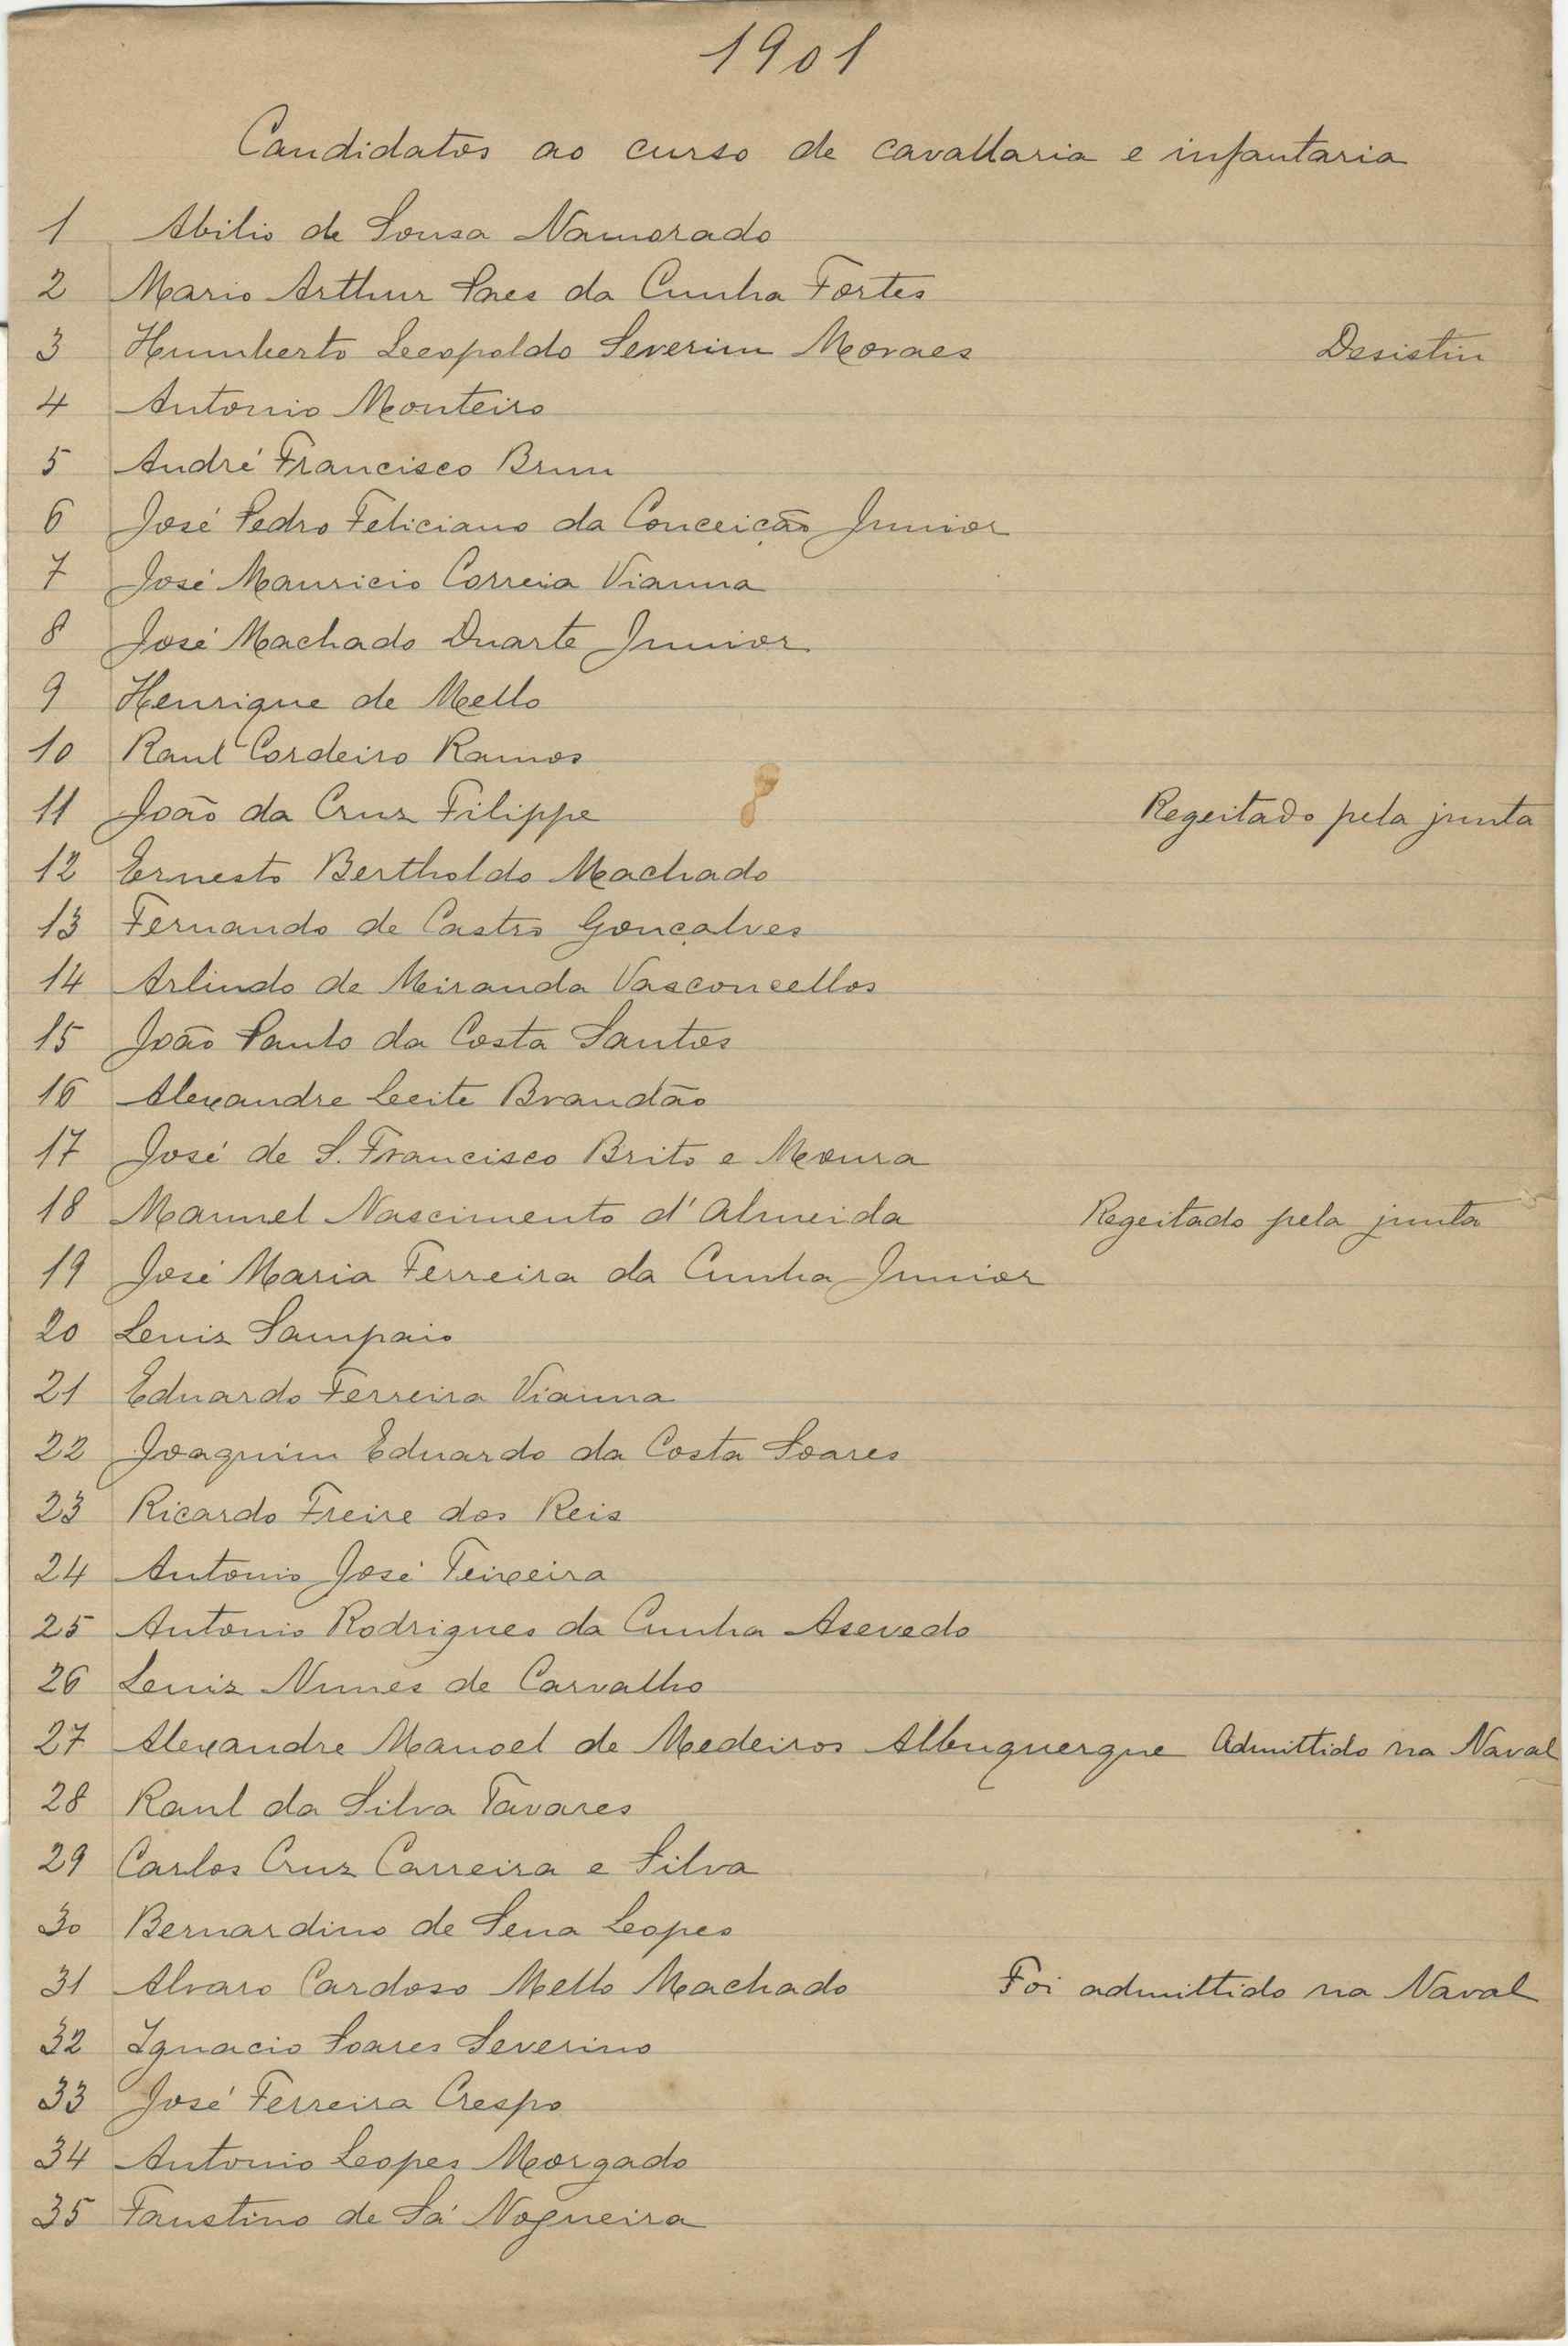 1901
Candidatos ao curso de cavallaria e infantaria
1 Abilio de Sousa Namorado
2 Mario Arthur Paes da Cunha Fortes
3 Humberto Leopoldo Severim Moraes Desistiu
4 Antonio Monteiro
5 André Francisco Brun
6 José Pedro Feliciano da Conceição Junior
7 José Mauricio Correia Vianna
8 José Machado Duarte Junior
9 Henrique de Mello
10 Raul Cordeiro Ramos
11 João da Cruz Filippe Regeitado pela junta
12 Ernesto Bertholdo Machado
13 Fernando de Castro Gonçalves
14 Arlindo de Miranda Vasconcellos
15 João Paulo da Costa Santos
16 Alexandre Leite Brandão
17 José de S. Francisco Brito e Moura
18 Manuel Nascimento d'Almeida Regeitado pela junta
19 José Maria Ferreira da Cunha Junior
20 Luiz Sampaio
21 Eduardo Ferreira Vianna
22 Joaquim Eduardo da Costa Soares
23 Ricardo Freire dos Reis
24 Antonio José Teixeira
25 Antonio Rodrigues da Cunha Asevedo
26 Luiz Nunes de Carvalho
27 Alexandre Manoel de Medeiros Albuquerque Admittido na Naval
28 Raul da Silva Tavares
29 Carlos Cruz Carreira e Silva
30 Bernardino de Sena Lopes
31 Alvaro Cardoso Mello Machado Foi admittido na Naval
32 Ignacio Soares Severino
33 José Ferreira Crespo
34 Antonio Lopes Morgado
35 Faustino de Sá Nogueira